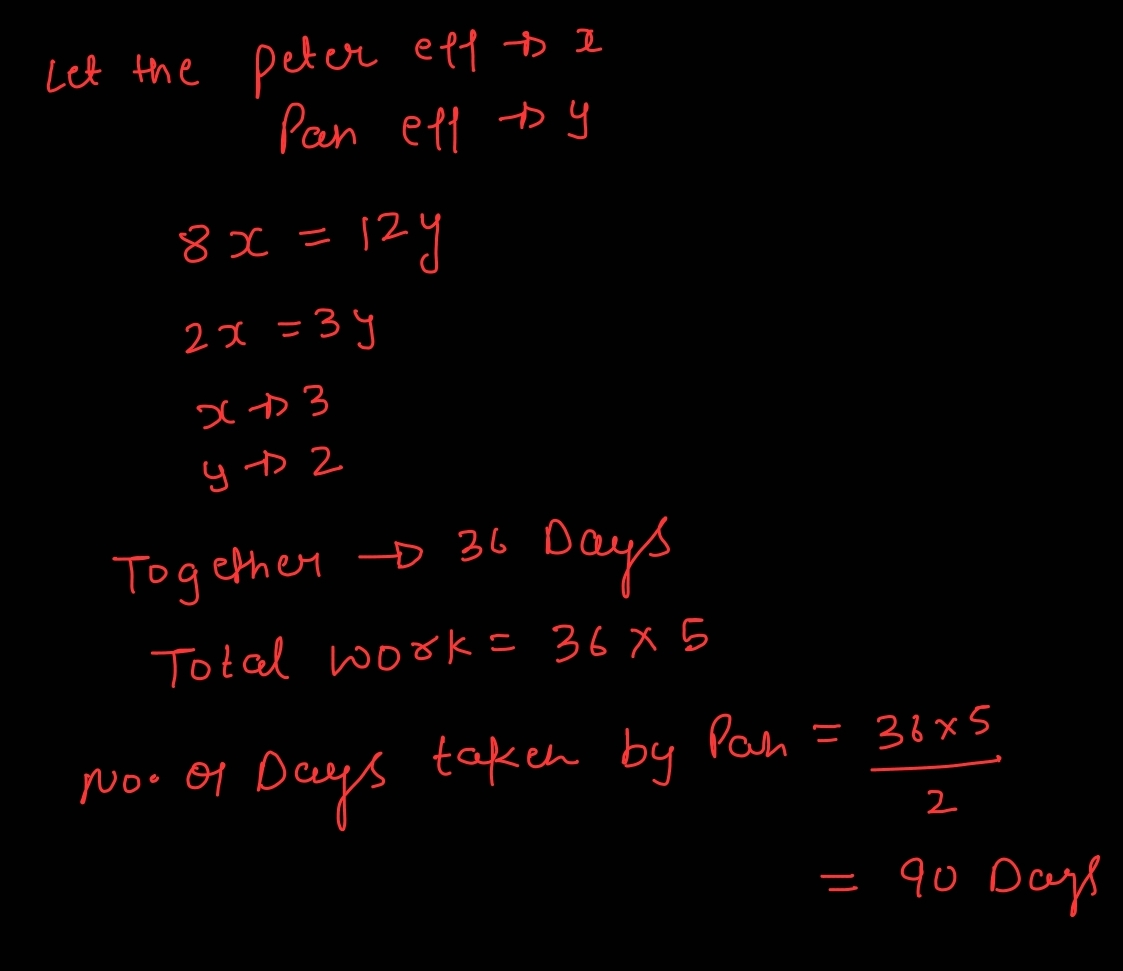 Let the peter eff → x
Pan eff → y
8x = 12y
2x = 3y
x → 3
y → 2
Together → 36 Days
Total work = 36 x 5
No. of Days taken by Pan = 36x5
2
= 90 Days